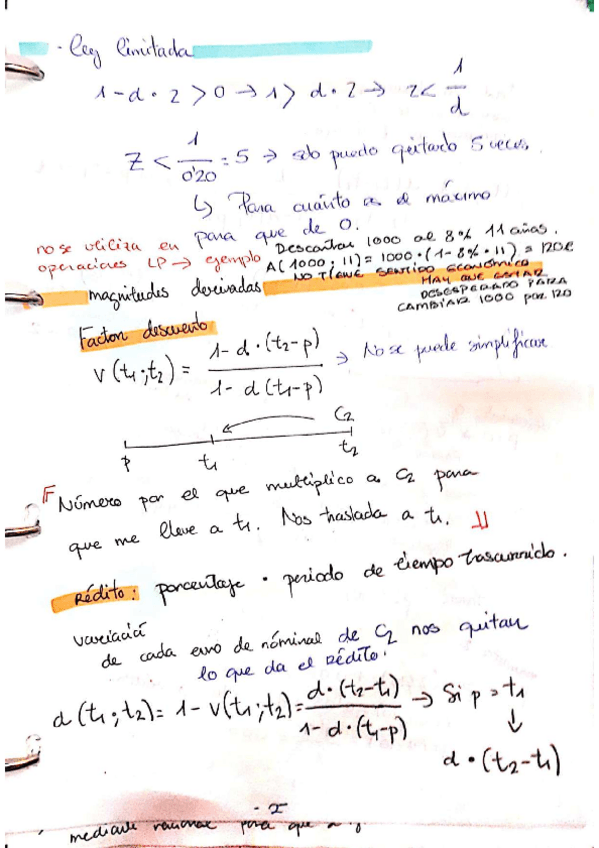 - Ley limitada
1-d·z>0 → 1> d·z → z< 1/d
z < 1/0'20 = 5 → solo puedo quitarlo 5 veces.
↳ Para cuánto es el máximo
para que de 0.
no se utiliza en
operaciones LP → ejemplo
Descontar 1000 al 8% 11 años.
A(1000; 11) = 1000·(1-8%·11) = 120€
NO TIENE SENTIDO ECONÓMICO
HAY QUE ESTAR
DESESPERADO PARA
CAMBIAR 1000 por 120
magnitudes derivadas
Factor descuento
v(t₁;t₂) = 1-d·(t₂-p) / 1-d(t₁-p) → No se puede simplificar
C₂
p t₁ t₂
Número por el que multiplico a C₂ para
que me lleve a t₁. Nos traslada a t₁.
Rédito: porcentaje · periodo de tiempo trascurrido.
variació
de cada euro de nóminal de C₂ nos quitan
lo que da el rédito.
d(t₁;t₂) = 1-v(t₁;t₂) = d·(t₂-t₁) / 1-d·(t₁-p) → Si p = t₁
↓
d·(t₂-t₁)
mediante para que